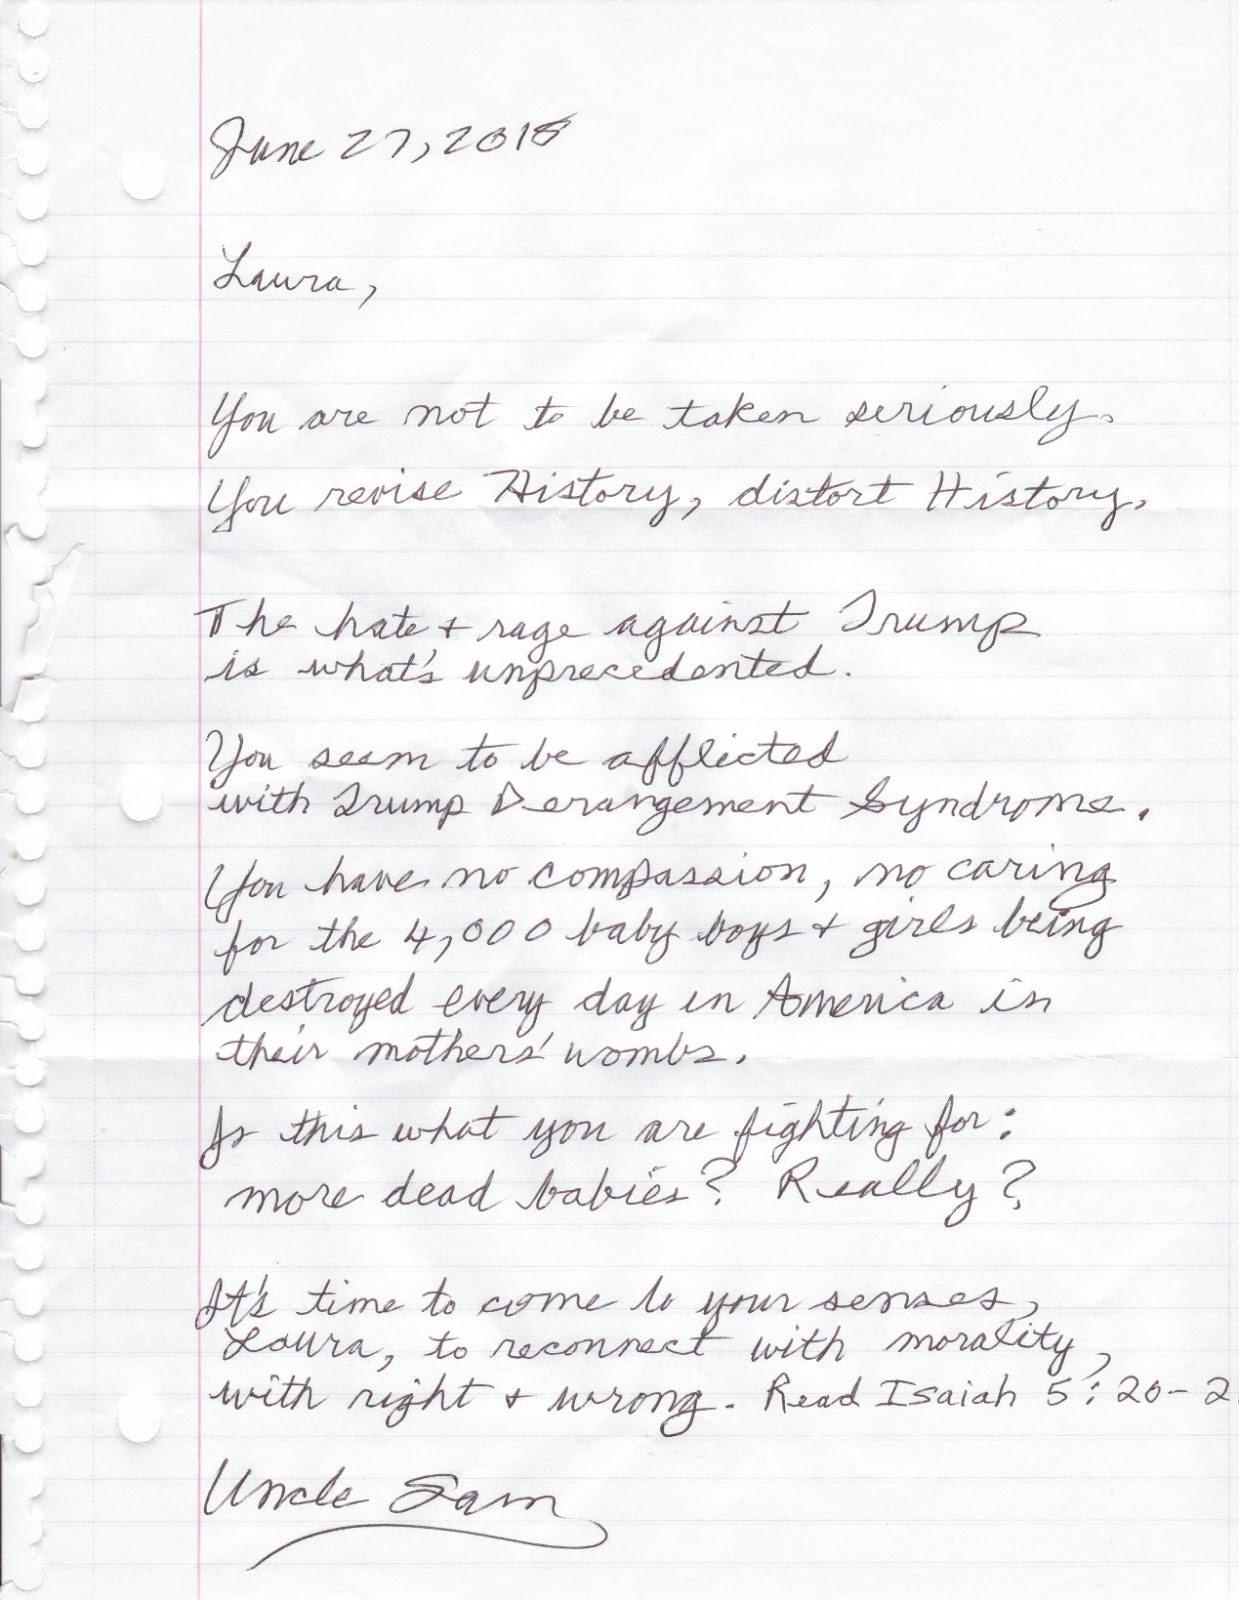 June 27, 2018
Laura,
You are not to be taken seriously.
You revise History, distort History.
The hate + rage against Trump
is what's unprecedented.
You seem to be afflicted
with Trump Derangement Syndrome.
You have no compassion, no caring
for the 4,000 baby boys + girls being
destroyed every day in America in
their mothers' wombs.
Is this what you are fighting for:
more dead babies? Really?
It's time to come to your senses,
Laura, to reconnect with morality,
with right + wrong. Read Isaiah 5:20-2
Uncle Sam